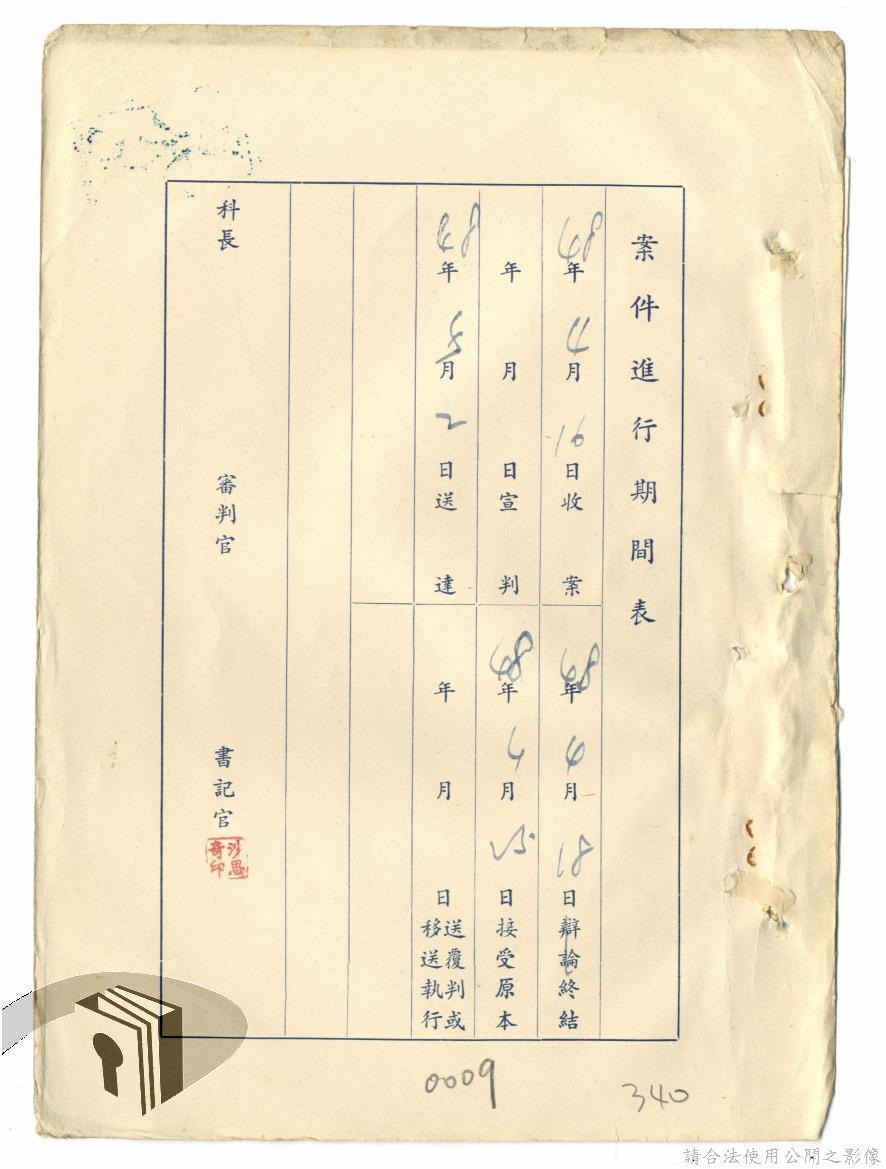 案件進行期間表
48年4月16日收案
48年4月18日辯論終結
年月日宣判
48年4月25日接受原本
48年5月2日送達
年月日送覆判或移送執行
科長
審判官
書記官
沙思奇印
0009
340
請合法使用公開之影像